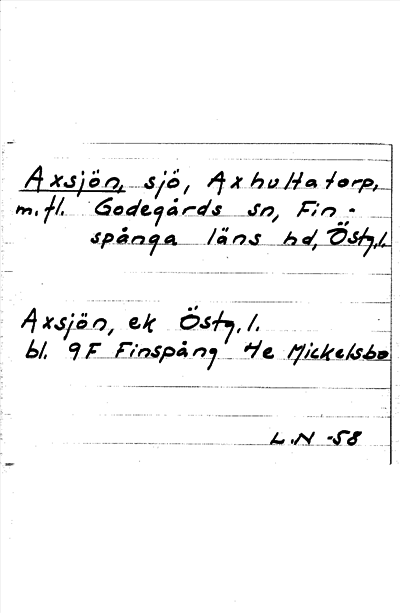 Axsjön, sjö, Axhultatorp,
m.fl. Godegårds sn, Fin-
spånga läns hd, Östg.l.
Axsjön, ek Östg.l.
bl. 9F Finspång 4e Mickelsbo
L.N -58